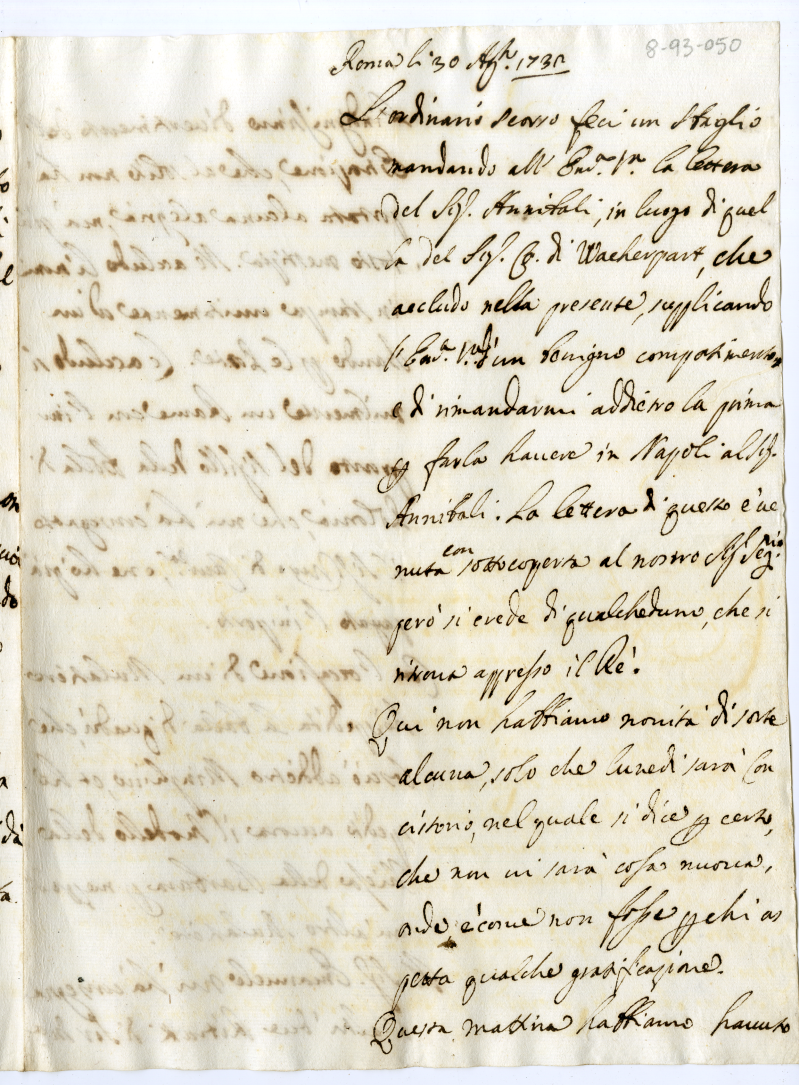 8-93-050
Roma li 30 Ag.
L'ordinario scorso feci un sbaglio
mandando all' Em. V. la lettera
del Sig. Annibali, in luogo di quel
la del Sig. Co. di Wackerpart, che
accludo nella presente, supplicando
l'Em. V. d'un benigno compatimento,
e di rimandarmi addietro la prima
farla havere in Napoli al Sig.
Annibali. La lettera di questo è ve
nuta con sottocoperta al nostro
però si crede di qualcheduno, che si
ritrova appresso il Rè.
Qui non habbiamo novità di sorte
alcuna, solo che lunedi sarà Con
cistorio, nel quale si dice p certo,
che non vi sarà cosa nuova,
onde, è come non fosse p chi as
petta qualche gratificazione.
Questa mattina habbiamo havuto